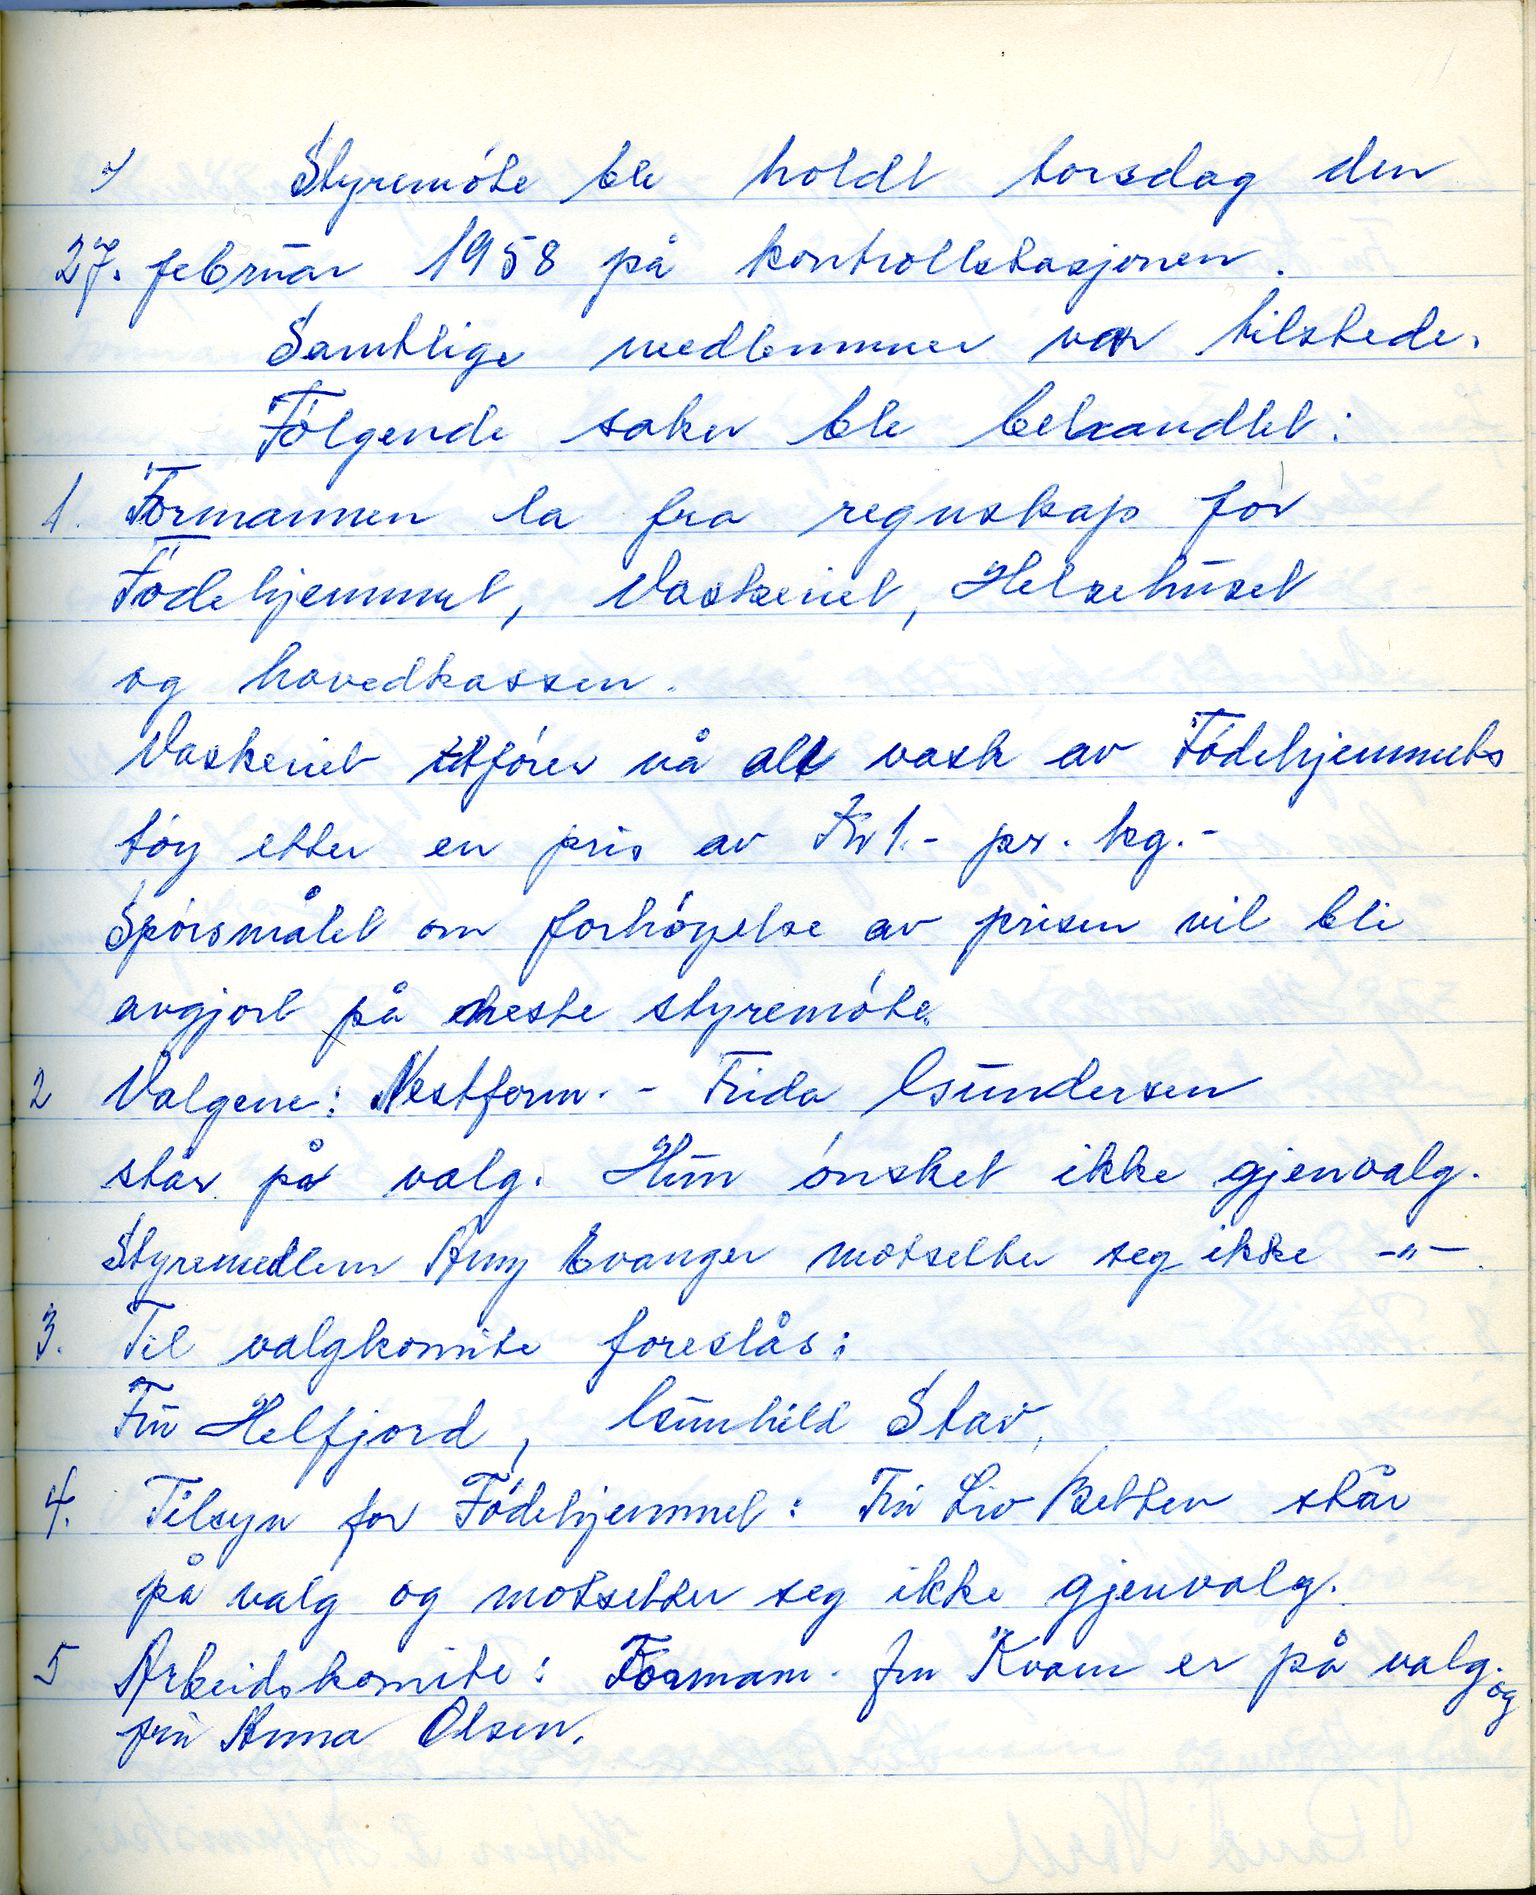 Styremöte ble holdt torsdag den
27. februar 1958 på kontrollstasjonen.
Samtlige medlemmer var tilstede.
Fölgende saker ble behandlet:
1. Formannen la fra regnskap for
Födehjemmet, Vaskeriet, Helsehuset
og hovedkassen.
Vaskeriet utförer nå alt vask av Födehjemmets
töy etter en pris av Kr 1.- pr. kg.-
Spörsmålet om forhöyelse av prisen vil bli
avgjort på neste styremöte.
2 Valgene: Nestform. - Frida Gundersen
står på valg. Hun önsket ikke gjenvalg.
Styremedlem Amy Evanger motsetter seg ikke -"-
3. Til valgkomite foreslås:
Fru Helfjord, Gunhild Stav,
4. Tilsyn for Födehjemmet: Fru Liv Betten står
på valg og motsetter seg ikke gjenvalg.
5 Arbeidskomite: Formann. fru Kvam er på valg. og
fru Anna Olsen.